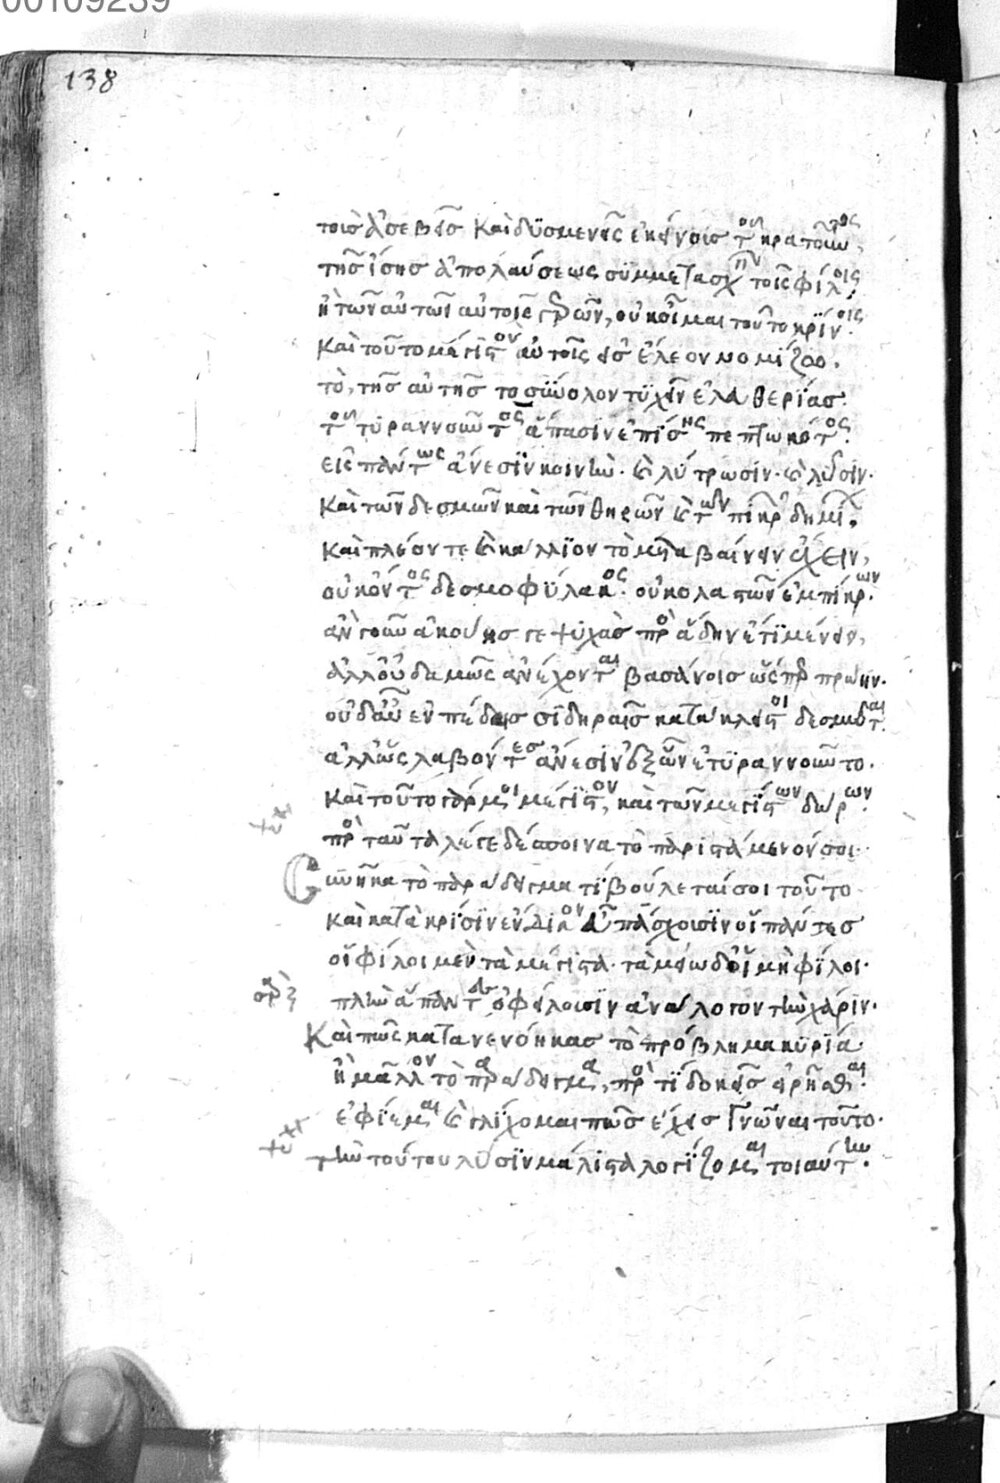 00109239
138
τοῖς ἀσεβέσι καὶ δυσμενέσιν ἐκείνοις τοῦ κρατοῦντος,
τῆς ἴσης ἀπολαύσεως συμμετασχεῖν τοῖς φίλοις,
ἢ τῶν αὐτῶν αὐτοῖς, οὐκ οἶμαι τοῦτο κρίνοις.
καὶ τοῦτο μέγιστον αὐτοῖς εἰς ἔλεον νομίζοιο.
τὸ, τῆς αὐτῆς τὸ σύνολον τυχεῖν ἐλευθερίας.
τοῦ τυραννοῦντος ἅπασιν ἐπίσης πεπτωκότος.
εἰς πάντως ἄνεσιν κοινὴν. καὶ λύτρωσιν. καὶ λύσιν.
καὶ τῶν δεσμῶν καὶ τῶν θηρῶν καὶ τῶν πικρῶν δημίων.
καὶ πλέον τε καὶ κάλλιον τὸ μὴ καταβαίνειν ἔχειν,
οὐκ ὄντος δεσμοφύλακος. οὐ κολαστῶν ἐμπίκρων.
ἂν γοῦν ἀκούῃς γε ψυχὰς πρὸς ᾅδην ἔτι μένειν,
ἀλλ' οὐδαμῶς ἀνέχονται βασάνοις ὥσπερ πρώην.
οὐδ' αὖ ἐν πέδαις σιδηραῖς κατάκλειστοι δεσμοῦνται.
ἀλλ' ὡς λαβόντες ἄνεσιν ἐξ ὧν ἐτυραννοῦντο.
καὶ τοῦτο μέγιστον, καὶ τῶν μεγίστων δώρων.
πρὸς ταῦτα λέγε δέσποινα τὸ παριστάμενόν σοι.
Συνῆκα τὸ παράδειγμα τί βούλεταί σοι τοῦτο
καὶ κατὰ κρίσιν ἔνδικον ἂν πάσχοισιν οἱ πάντες
οἱ φίλοι μὲν τὰ μέγιστα. τὰ μείω δ' οἱ μὴ φίλοι.
πλὴν ἅπαντες ὀφείλοισιν ἀνάλογον τὴν χάριν.
Καὶ πῶς κατανενόηκας τὸ πρόβλημα κυρία.
ἢ μᾶλλον τὸ παράδειγμα, πρὸς τί δοκεῖς εἰρῆσθαι.
ἐφίεμαι καὶ γλίχομαι πῶς ἔχεις γνῶναι τοῦτο.
τὴν τούτου λύσιν μάλιστα λογίζομαι τοιαύτην.